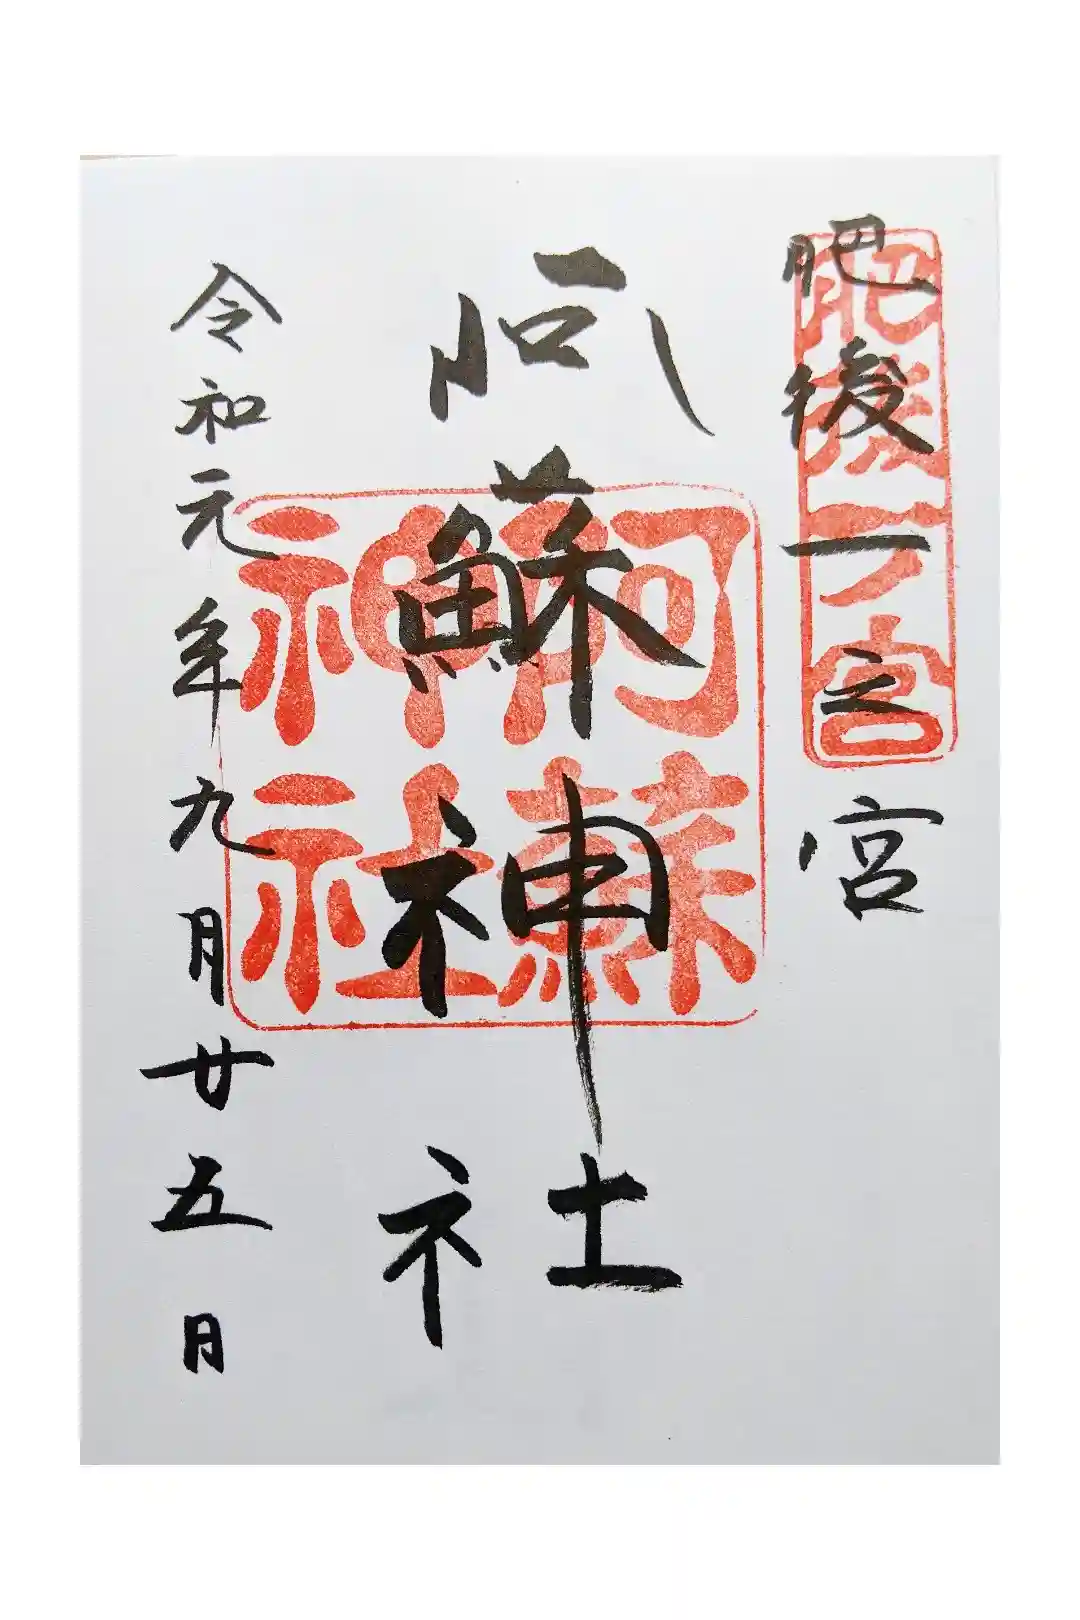 肥後一之宮
肥後一ノ宮
阿蘇神社
阿蘇
神社
令和元年九月廿五日